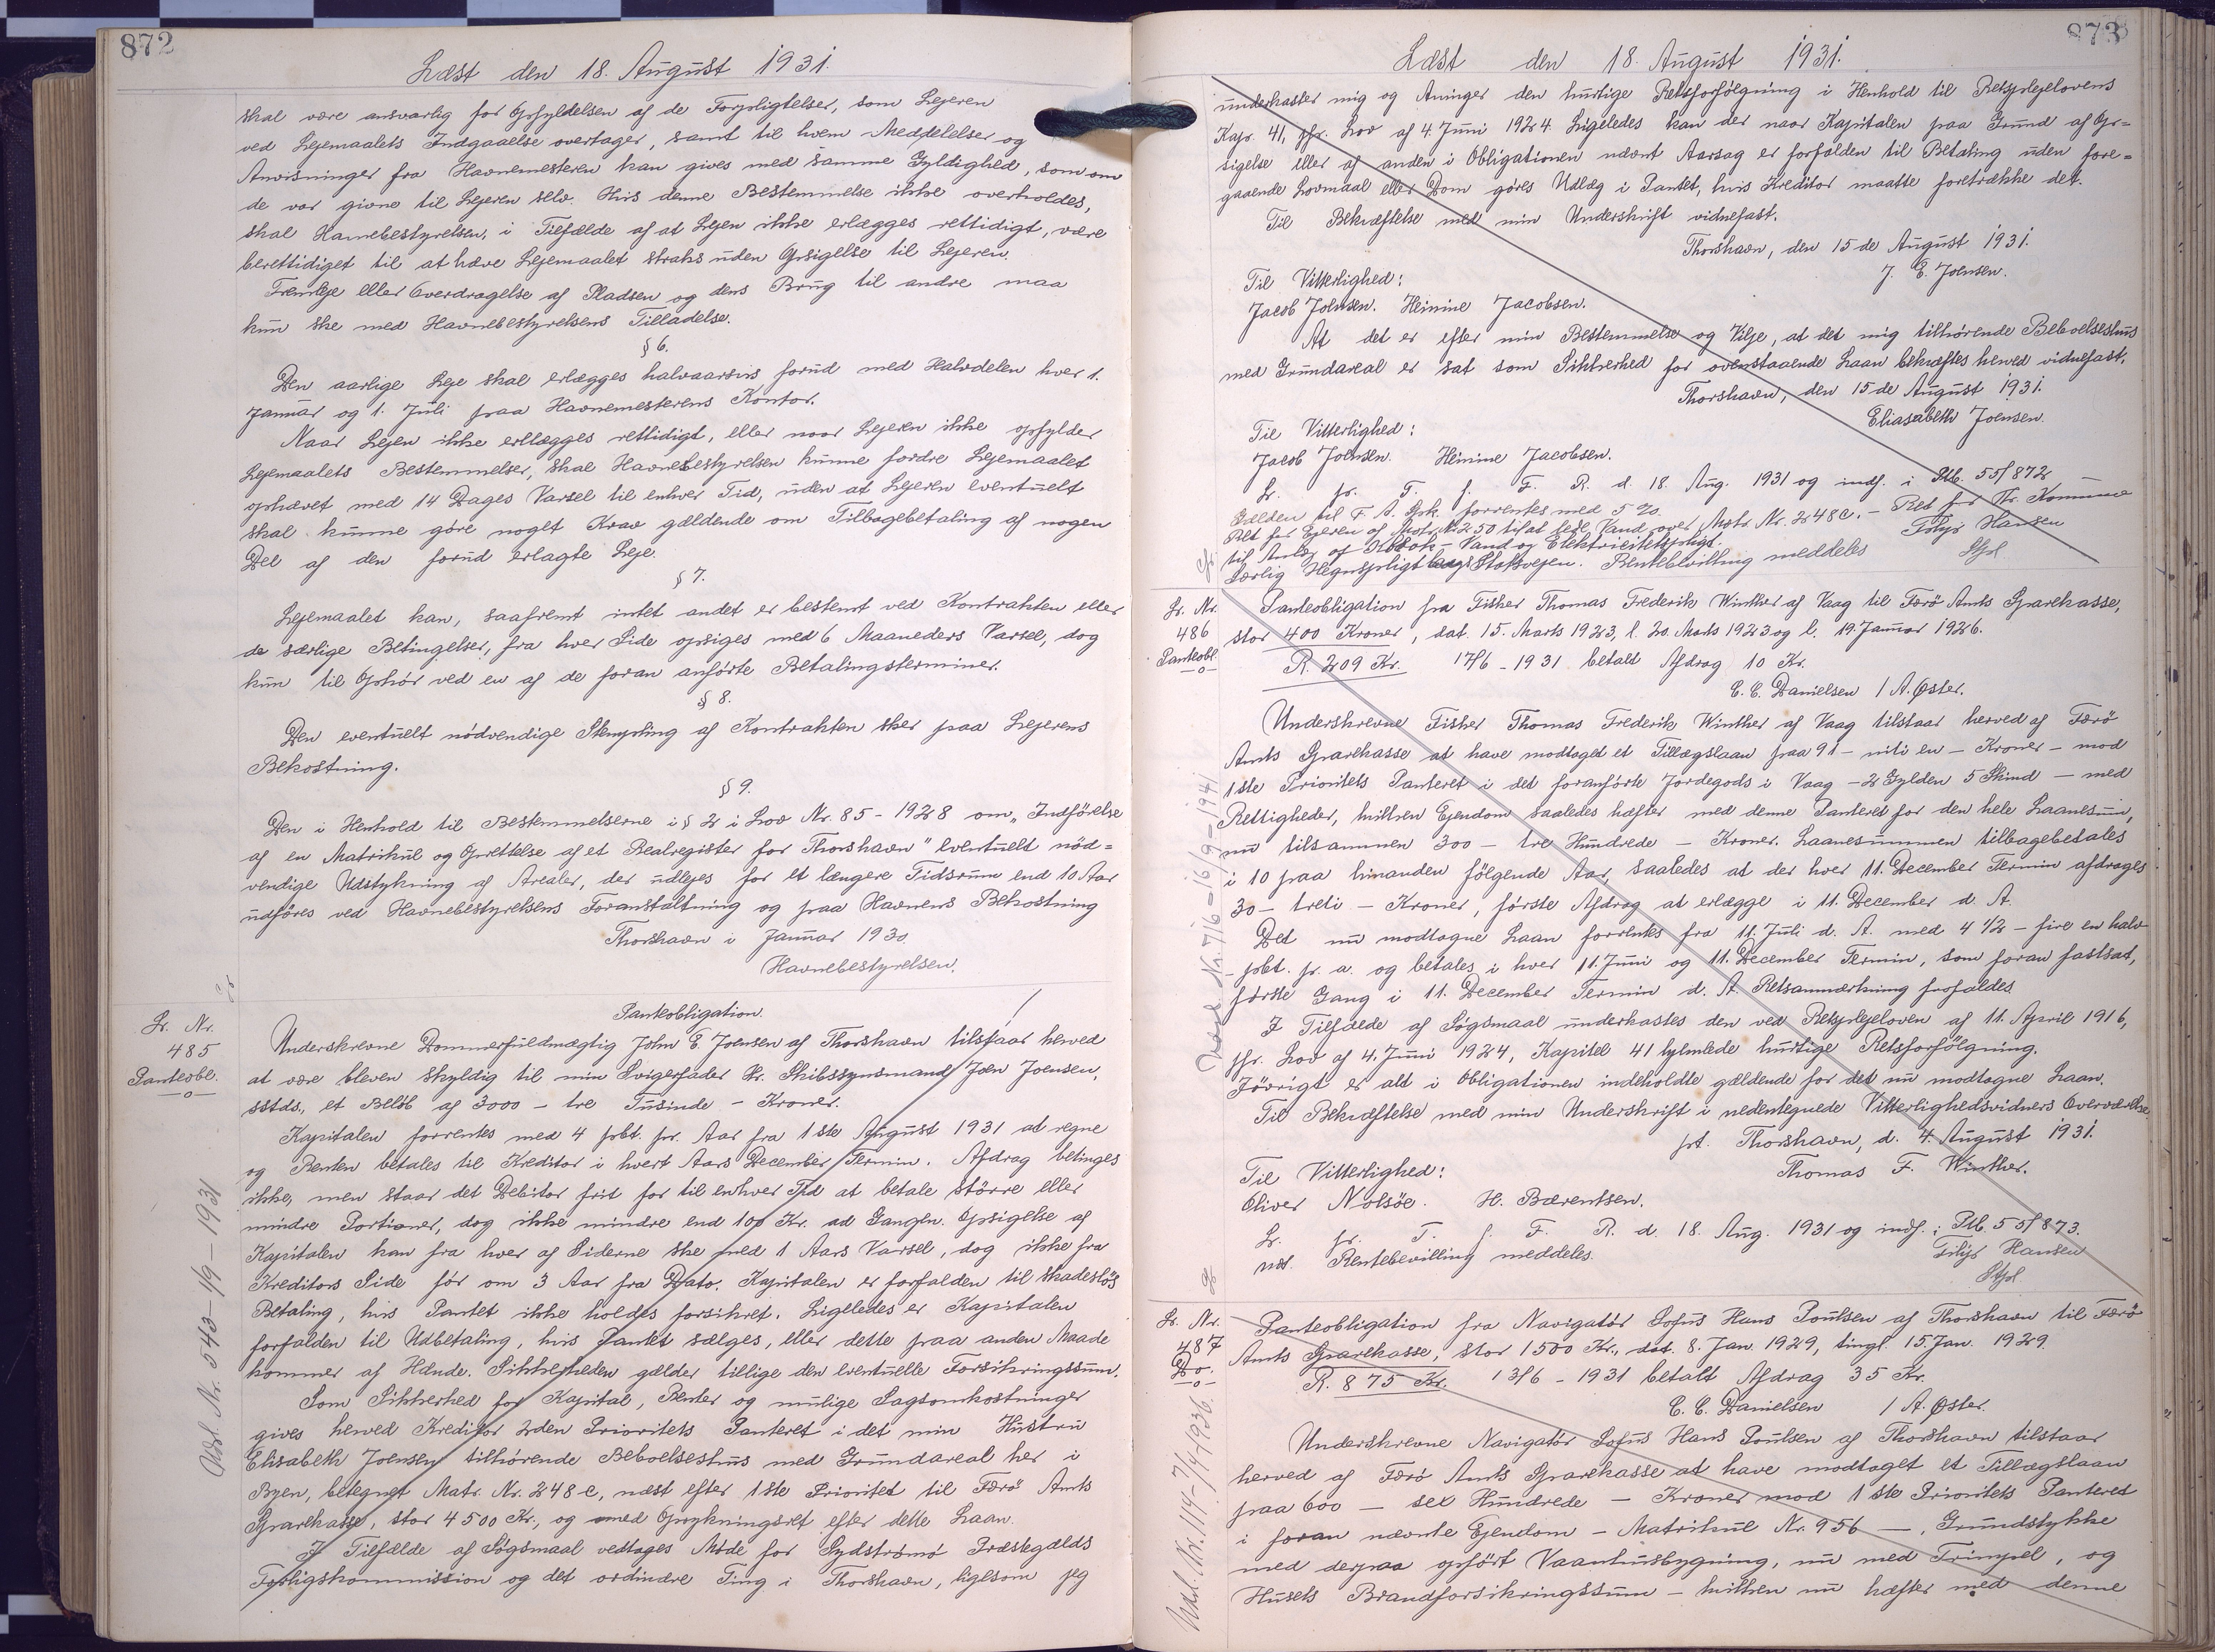 872
Læst den 18. August 1931.
skal være ansvarlig for Opfyldelsen af de Forpligtelser, som Lejeren
ved Lejemaalets Indgaaelse overtager, samt til hvem Meddelelser og
Anvisninger fra Havnemesteren kan gives med samme Gyldighed, som om
de var givne til Lejeren selv. Hvis denne Bestemmelse ikke overholdes,
skal Havnebestyrelsen, i Tilfælde af at Lejen ikke erlægges rettidigt, være
berettidiget til at hæve Lejemaalet straks uden Opsigelse til Lejeren.
Fremleje eller Overdragelse af Pladsen og dens Brug til andre maa
kun ske med Havnebestyrelsens Tilladelse.
§ 6.
Den aarlige Leje skal erlægges halvaarsvis forud med Halvdelen hver 1.
Januar og 1. Juli paa Havnemesterens Kontor.
Naar Lejen ikke erlægges rettidigt, eller naar Lejeren ikke opfylder
Lejemaalets Bestemmelser, skal Havnebestyrelsen kunne fordre Lejemaalet
ophævet med 14 Dages Varsel til enhver Tid, uden at Lejeren eventuelt
skal kunne göre noget Krav gældende om Tilbagebetaling af nogen
Del af den forud erlagte Leje.
§ 7.
Lejemaalet kan, saafremt intet andet er bestemt ved Kontrakten eller
de særlige Betingelser, fra hver Side opsiges med 6 Maaneders Varsel, dog
kun til Ophör ved en af de foran anförte Betalingsterminer.
§ 8.
Den eventuelt nödvendige Stempling af Kontrakten sker paa Lejerens
Bekostning.
§ 9.
Den i Henhold til Bestemmelserne i § 2 i Lov Nr. 85 - 1928 om „Indförelse
af en Matrikul og Oprettelse af et Realregister for Thorshavn" eventuelt nöd=
vendige Udstykning af Arealer, der udlejes for et længere Tidsrum end 10 Aar
udföres ved Havnebestyrelsens Foranstaltning og paa Havnens Bekostning
Thorshavn i Januar 1930.
Havnebestyrelsen.
Lr. Nr.
485
Panteobl.
Panteobligation.
Underskrevne Dommerfuldmægtig John E. Joensen af Thorshavn tilstaar herved
at være bleven skyldig til min Svigerfader Hr. Skibssynsmand Joen Joensen,
sstds., et Belöb af 3000 - tre Tusinde - Kroner.
Kapitalen forrentes med 4 pct. pr. Aar fra 1ste August 1931 at regne
og Renten betales til Kreditor i hvert Aars December Termin. Afdrag betinges
ikke, men staar det Debitor frit for til enhver Tid at betale større eller
mindre Portioner, dog ikke mindre end 100 Kr. ad Gangen. Opsigelse af
Kapitalen kan fra hver af Siderne ske med 1 Aars Varsel, dog ikke fra
Kreditors Side för om 3 Aar fra Dato. Kapitalen er forfalden til skadeslös
Betaling, hvis Pantet ikke holdes forsikret. Ligeledes er Kapitalen
forfalden til Udbetaling, hvis Pantet sælges, eller dette paa anden Maade
kommer af Hænde. Sikkerheden gælder tillige den eventuelle Forsikringssum.
Som Sikkerhed for Kapital, Renter og mulige Sagsomkostninger
gives herved Kreditor 2den Prioritets Panteret i det min Hustru
Elisabeth Joensen tilhörende Beboelseshus med Grundareal her i
Byen, betegnet Matr. Nr. 248 c, næst efter 1ste Prioritet til Færö Amts
Sparekasse, stor 4500 Kr., og med Oprykningsret efter dette Laan.
I Tilfælde af Sögsmaal vedtages Möde for Sydströmö Præstegælds
Forligskommission og det ordinære Ting i Thorshavn, ligesom jeg
Udsl. Nr. 543 - 1/9 - 1931
873
Læst den 18. August 1931.
underkaster mig og Arvinger den hurtige Retsforfölgning i Henhold til Retsplejelovens
Kap. 41, jfr. Lov af 4. Juni 1924. Ligeledes kan der naar Kapitalen paa Grund af Op=
sigelse eller af anden i Obligationen nævnt Aarsag er forfalden til Betaling uden fore=
gaaende Lovmaal eller Dom göres Udlæg i Pantet, hvis Kreditor maatte foretrække det.
Til Bekræftelse med min Underskrift vidnefast.
Thorshavn, den 15de August 1931.
J. E. Joensen.
Til Vitterlighed:
Jacob Joensen. Heinine Jacobsen.
At det er efter min Bestemmelse og Vilje, at det mig tilhörende Beboelseshus
med Grundareal er sat som Sikkerhed for ovenstaaende Laan bekræftes herved vidnefast.
Thorshavn, den 15de August 1931.
Eliasabeth Joensen.
Til Vitterlighed:
Jacob Joensen. Heinine Jacobsen.
Lr. pr. T. f. F. R. d. 18. Aug. 1931 og indf. i Ptb. 55/872
Gælden til F. A. Spk. forrentes med 5 %.
Ret for Ejeren af Matr. Nr. 250 til at lede Vand over Matr. Nr. 248 c. - Ret for Th. Kommune
til Anlæg af Kloak- Vand og Elektricitetspligt.
Særlig Hegnspligt langs Stoksvejen. Rentebevilling meddeles
Filip Hansen
Stfd
Lr. Nr.
486
Panteobl.
Panteobligation fra Fisker Thomas Frederik Winther af Vaag til Færö Amts Sparekasse,
stor 400 Kroner, dat. 15. Marts 1923, l. 20. Marts 1923 og l. 19. Januar 1926.
R. 209 Kr. 17/6 - 1931 betalt Afdrag 10 Kr.
C. C. Danielsen / A. Øster.
Underskrevne Fisker Thomas Frederik Winther af Vaag tilstaar herved af Færö
Amts Sparekasse at have modtaget et Tillægslaan paa 91 - niti en - Kroner - mod
1ste Prioritets Panteret i det foranförte Jordegods i Vaag - 2 Gylden 5 Skind - med
Rettigheder, hvilken Ejendom saaledes hæfter med denne Panteret for den hele Laanesum,
nu tilsammen 300 - tre Hundrede - Kroner. Laanesummen tilbagebetales
i 10 paa hinanden fölgende Aar, saaledes at der hver 11. December Termin afdrages
30 - treti - Kroner, förste Afdrag at erlægge i 11. December d. A.
Det nu modtagne Laan forrentes fra 11. Juli d. A. med 4 1/2 - fire en halv
- pct. p. a. og betales i hver 11. Juni og 11. December Termin, som foran fastsat,
förste Gang i 11. December Termin d. A. Retsanmærkning frafaldes.
I Tilfælde af Sögsmaal underkastes den ved Retsplejeloven af 11. April 1916,
jfr. Lov af 4. Juni 1924, Kapitel 41 hjemlede hurtige Retsforfölgning.
Jövrigt er alt i Obligationen indeholdte gældende for det nu modtagne Laan.
Til Bekræftelse med min Underskrift i nedentegnede Vitterlighedsvidners Overværelse
pt. Thorshavn, d. 4. August 1931.
Thomas F. Winther.
Til Vitterlighed:
Oliver Nolsöe. H. Bærentsen.
Lr. pr. T. f. F. R. d. 18. Aug. 1931 og indf. i Ptb. 55/873.
Rentebevilling meddeles.
Filip Hansen
Stfd
Udsl. Nr. 716 - 16/9 - 1941
Lr. Nr.
487
Do.
Panteobligation fra Navigatör Sofus Hans Poulsen af Thorshavn til Færö
Amts Sparekasse, stor 1500 Kr., dat. 8. Jan. 1929, tingl. 15. Jan. 1929.
R. 875 Kr. 13/6 - 1931 betalt Afdrag 35 Kr.
C. C. Danielsen / A. Øster.
Underskrevne Navigatör Sofus Hans Poulsen af Thorshavn tilstaar
herved af Færö Amts Sparekasse at have modtaget et Tillægslaan
paa 600 - sex Hundrede - Kroner mod 1ste Prioritets Panteret
i foran nævnte Ejendom - Matrikul Nr. 956 -, Grundstykke
med derpaa opfört Vaanhusbygning, nu med Trimpel, og
Husets Brandforsikringssum - hvilken nu hæfter med denne
Udsl. Nr. 114 - 7/4 1936.